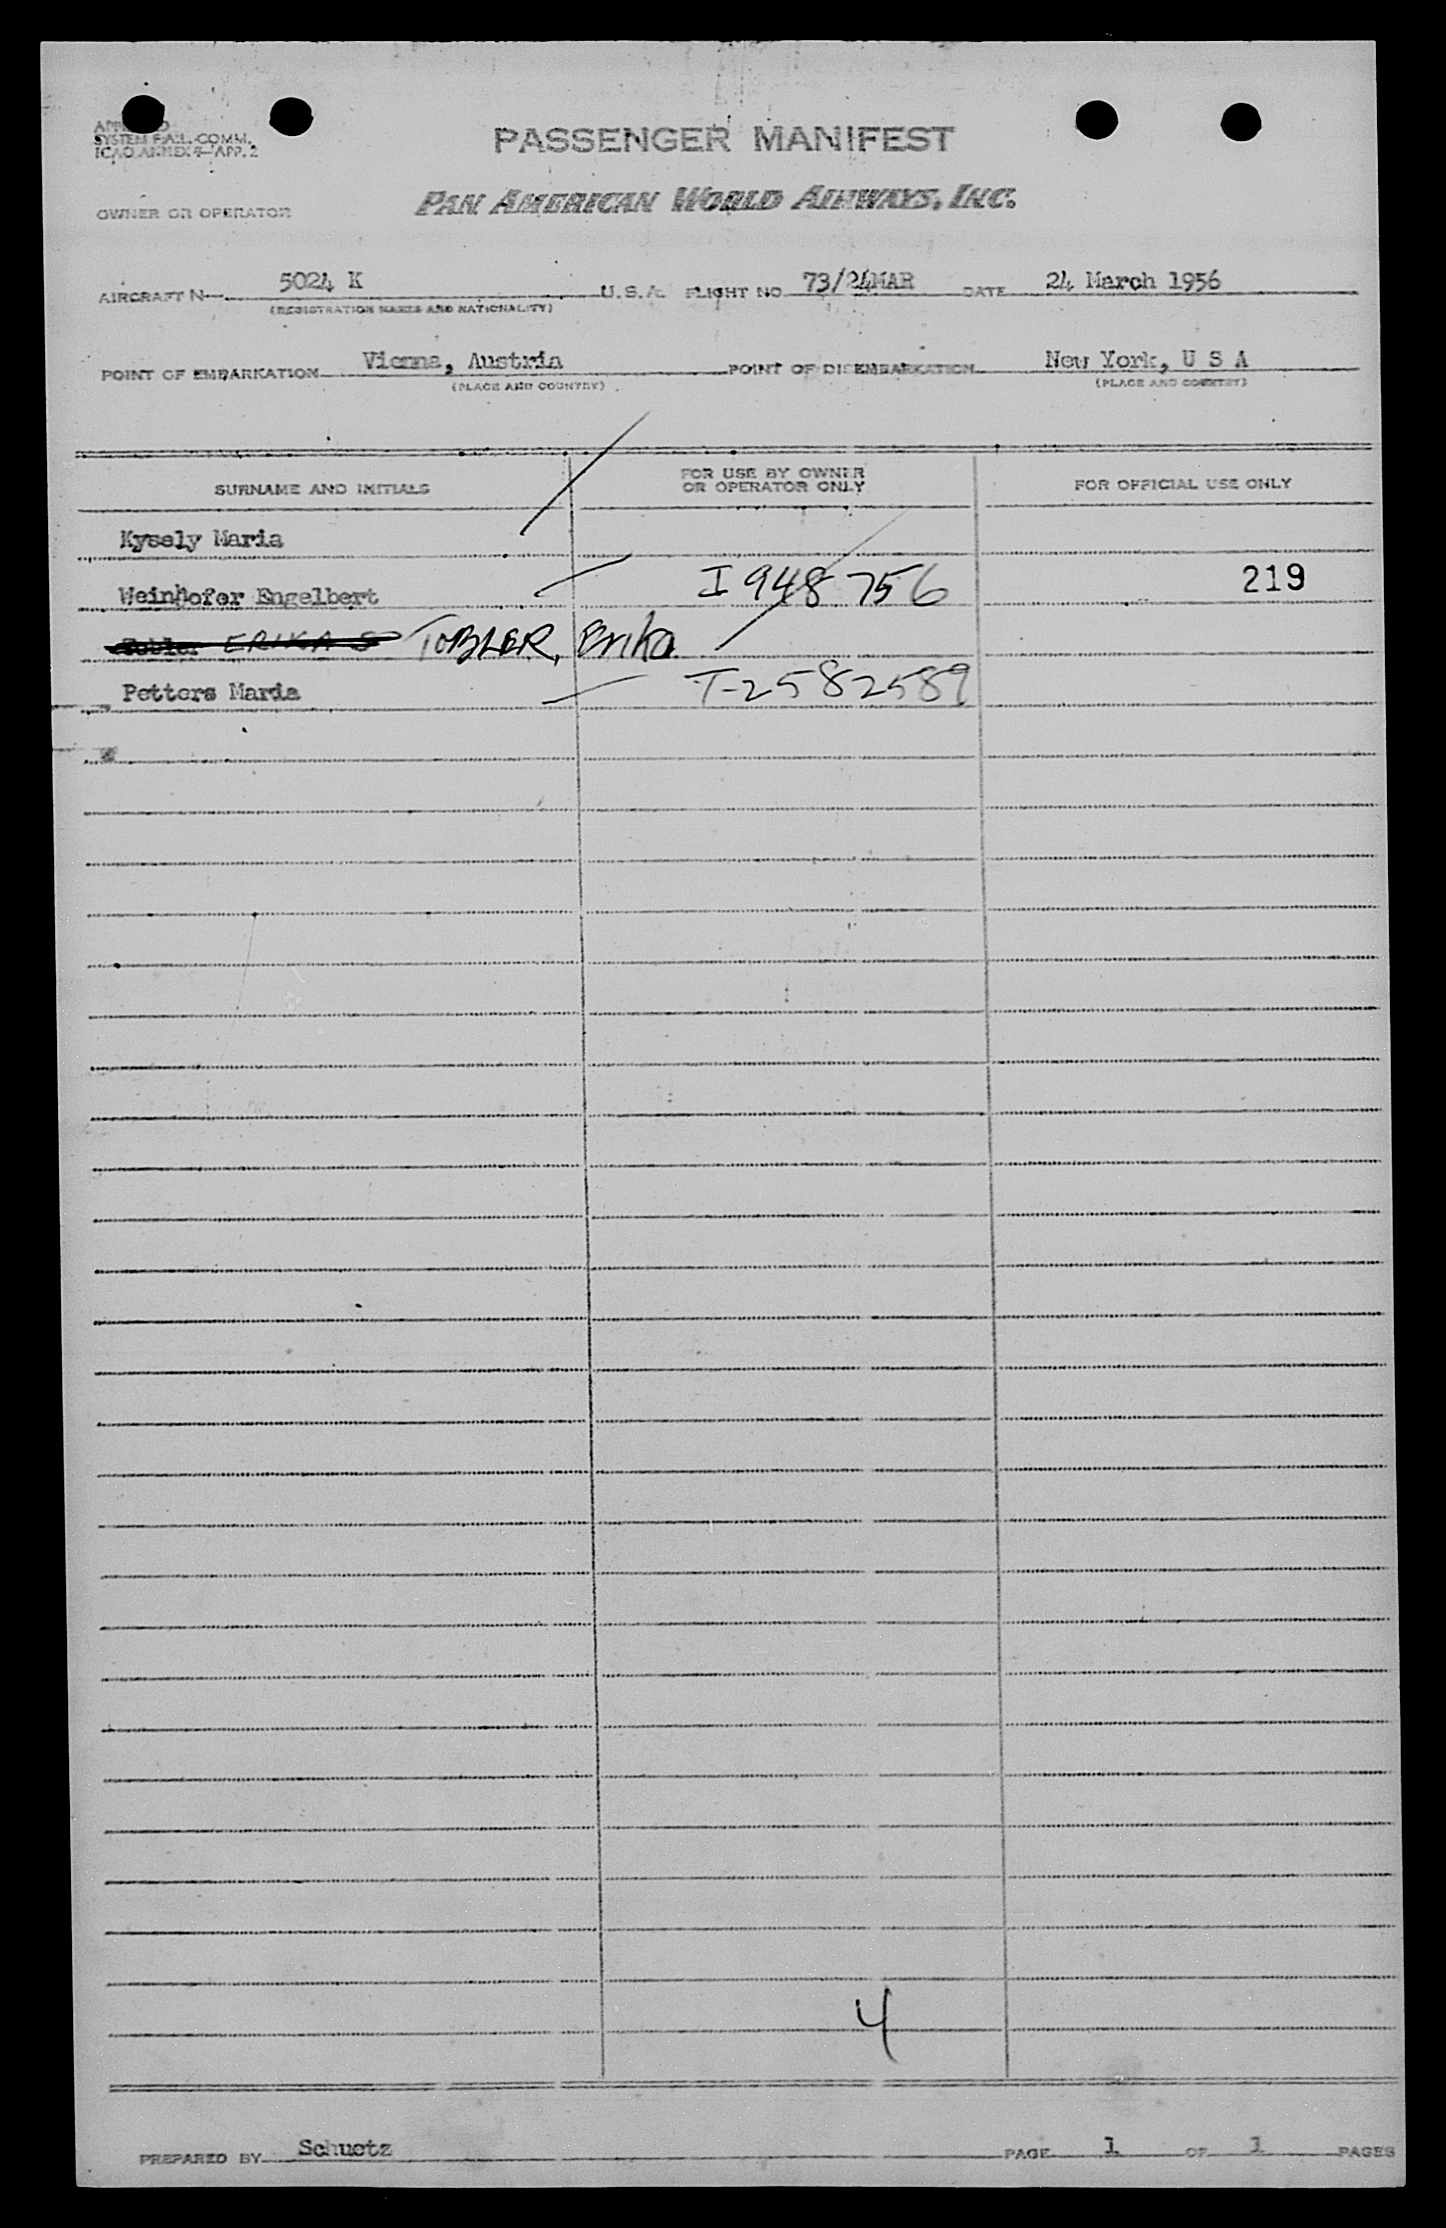 SYSTEM F.A.L.-COMM.
ICAO ANNEX 9-APP. 2
PASSENGER MANIFEST
OWNER OR OPERATOR PAN AMERICAN WORLD AIRWAYS, INC.
AIRCRAFT N 5024 K U.S.A. FLIGHT NO 73/24MAR DATE 24 March 1956
(REGISTRATION MARKS AND NATIONALITY)
POINT OF EMBARKATION Vienna, Austria POINT OF DISEMBARKATION New York, U S A
(PLACE AND COUNTRY) (PLACE AND COUNTRY)
SURNAME AND INITIALS FOR USE BY OWNER OR OPERATOR ONLY FOR OFFICIAL USE ONLY
Kysely Maria
Weinhofer Engelbert I 948 756 219
Tobler ERIKA S TOBLER, Erika
Petters Maria T-2582589
4
PREPARED BY Schuetz PAGE 1 OF 1 PAGES